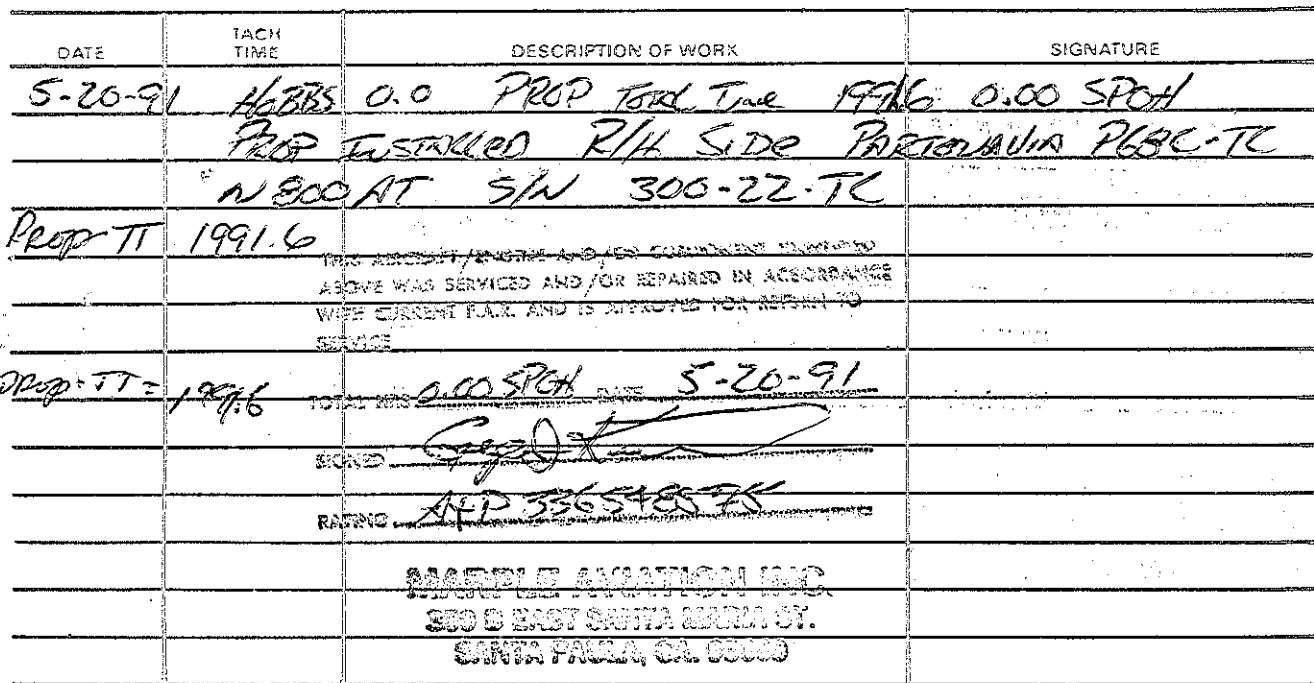 DATE TACH TIME DESCRIPTION OF WORK SIGNATURE
5-20-91 HOBBS 0.0 PROP Total Time 1991.6 0.00 SPOH
PROP INSTALLED R/H SIDE PARTENAVIA P68C-TC
N 800 AT S/N 300-22-TC
Prop TT 1991.6
THIS AIRCRAFT/ENGINE AND/OR COMPONENT
ABOVE WAS SERVICED AND/OR REPAIRED IN ACCORDANCE
WITH CURRENT F.A.R. AND IS APPROVED FOR RETURN TO
SERVICE
Prop-TT = 1991.6 TOTAL HRS 0.00 SPOH DATE 5-20-91
SIGNED
RATING A+P
MARPLE AVIATION INC.
EAST SANTA MARIA ST.
SANTA PAULA, CA.